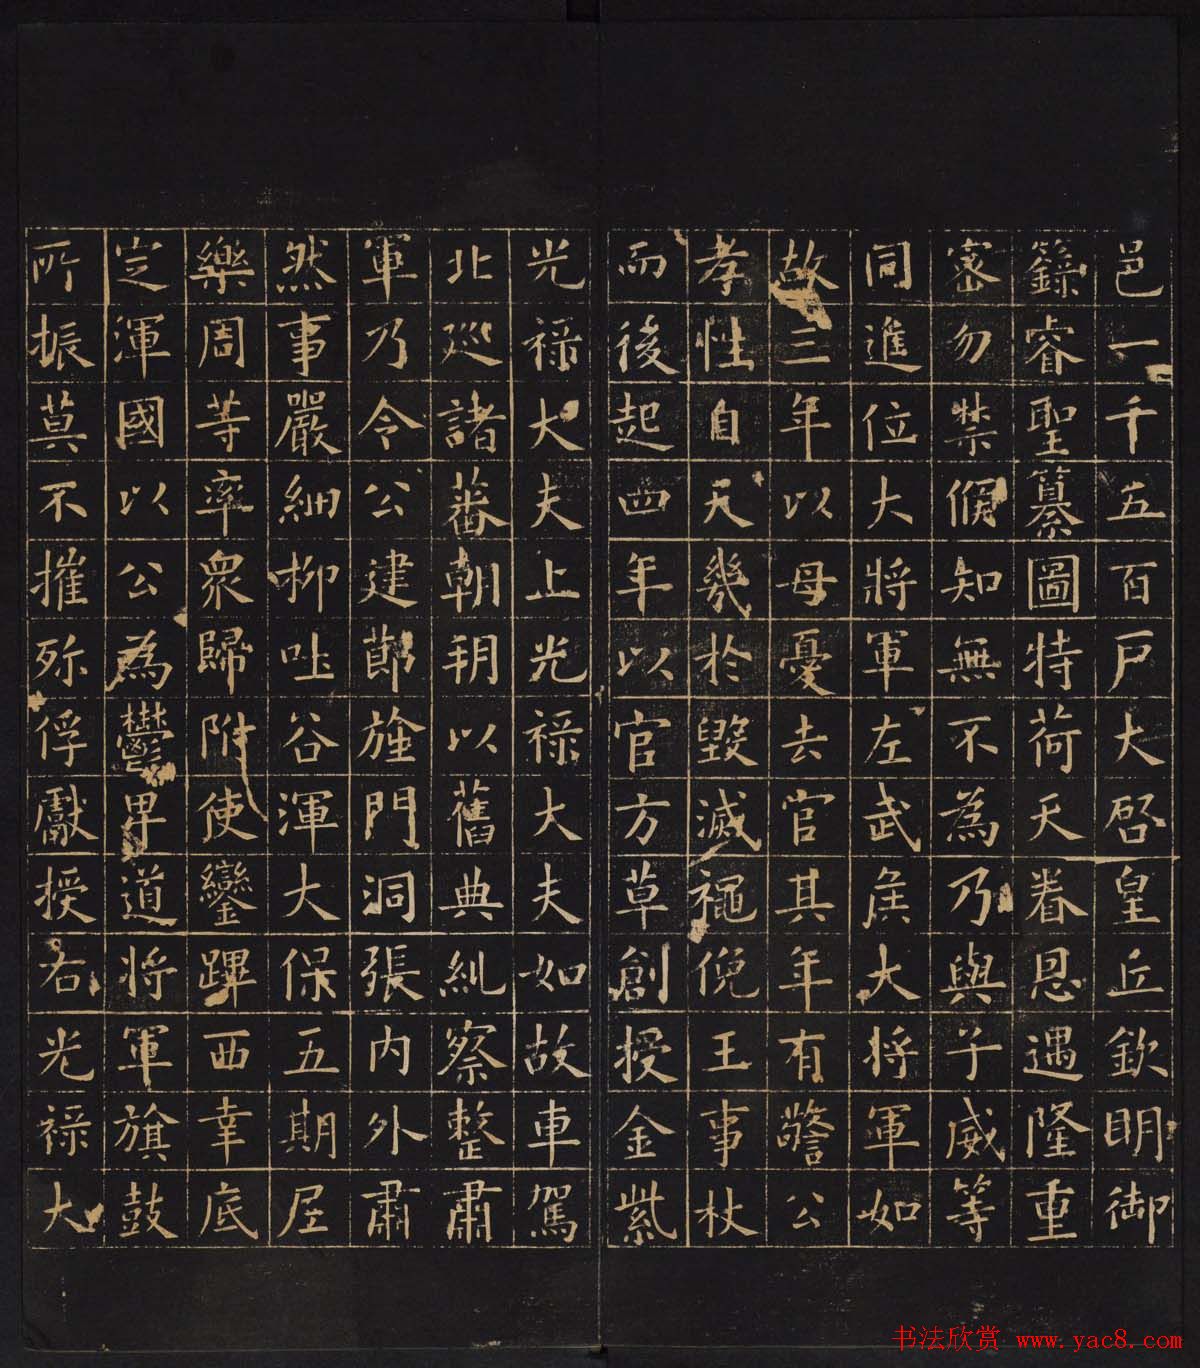 邑一千五百戶大啓皇丘欽明御
籙睿聖纂圖特荷天眷恩遇隆重
密勿禁候知無不為乃與子威等
同進位大將軍左武侯大將軍如
故三年以母憂去官其年有警公
孝性自天幾於毀滅裩倪王事杖
而後起四年以官方草創授金紫
光祿大夫上光祿大夫如故車駕
北巡諸蕃朝玥以舊典糺察整肅
軍乃令公建節旌門洞張內外肅
然事嚴細柳吐谷渾大保五期尼
樂周等率眾歸附使鑾蹕西幸底
定渾國以公為鬱卑道將軍旗鼓
所振莫不摧殄俘獻授右光祿大
书法欣赏 www.yac8.com